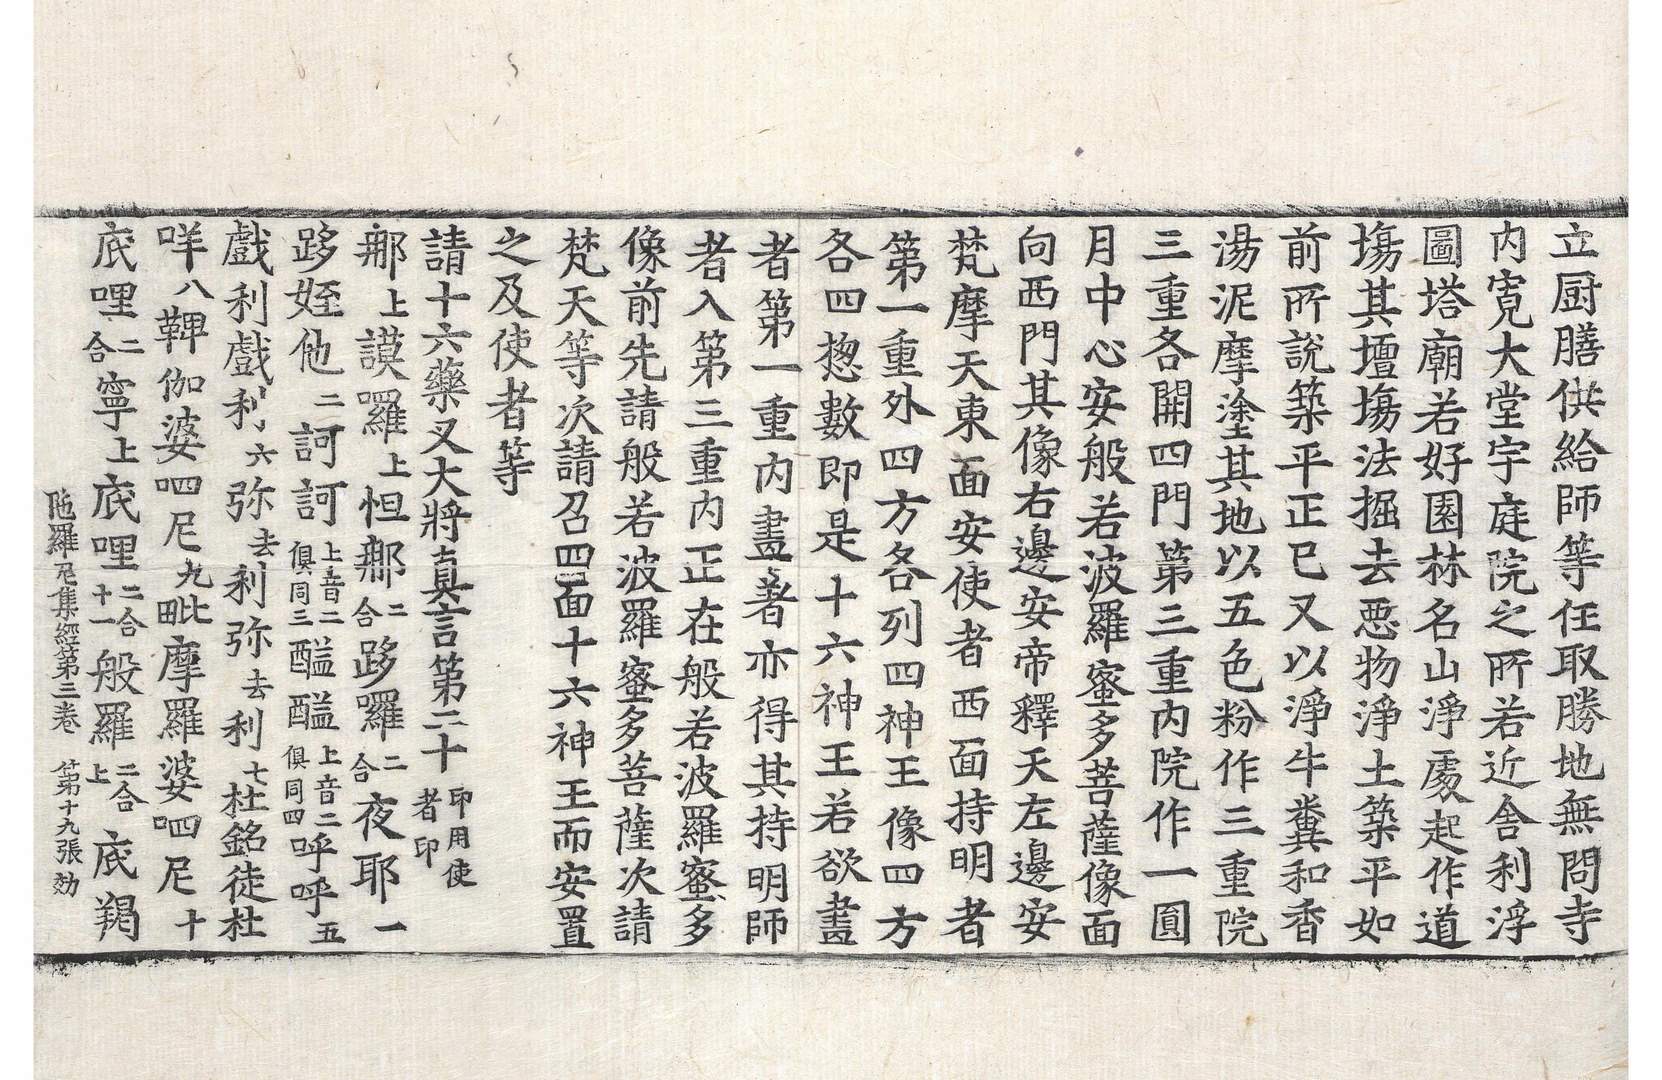 立厨膳供給師等任取勝地無問寺
内寛大堂宇庭院之所若近舍利浮
圖塔廟若好園林名山淨處起作道
塲其壇塲法掘去惡物淨土築平如
前所說築平正已又以淨牛糞和香
湯泥摩塗其地以五色粉作三重院
三重各開四門第三重内院作一圓
月中心安般若波羅蜜多菩薩像面
向西門其像右邊安帝釋天左邊安
梵摩天東面安使者西面持明者
第一重外四方各列四神王像四方
各四揔數即是十六神王若欲畫
者第一重内畫者亦得其持明師
者入第三重内正在般若波羅蜜多
像前先請般若波羅蜜多菩薩次請
梵天等次請召四面十六神王而安置
之及使者等
請十六藥叉大將真言第二十印用使者印
那上謨囉上怛那二合跢囉二合夜耶一
跢姪他二訶訶上音二俱同三醯醯上音二俱同四呼呼五
戲利戲利六弥去利弥去利七杜銘徒杜
咩八鞞伽婆呬尼九毗摩羅婆呬尼十
底哩二合寧上底哩二合十一般羅二合上底羯
陁羅尼集經第三卷 第十九張 効